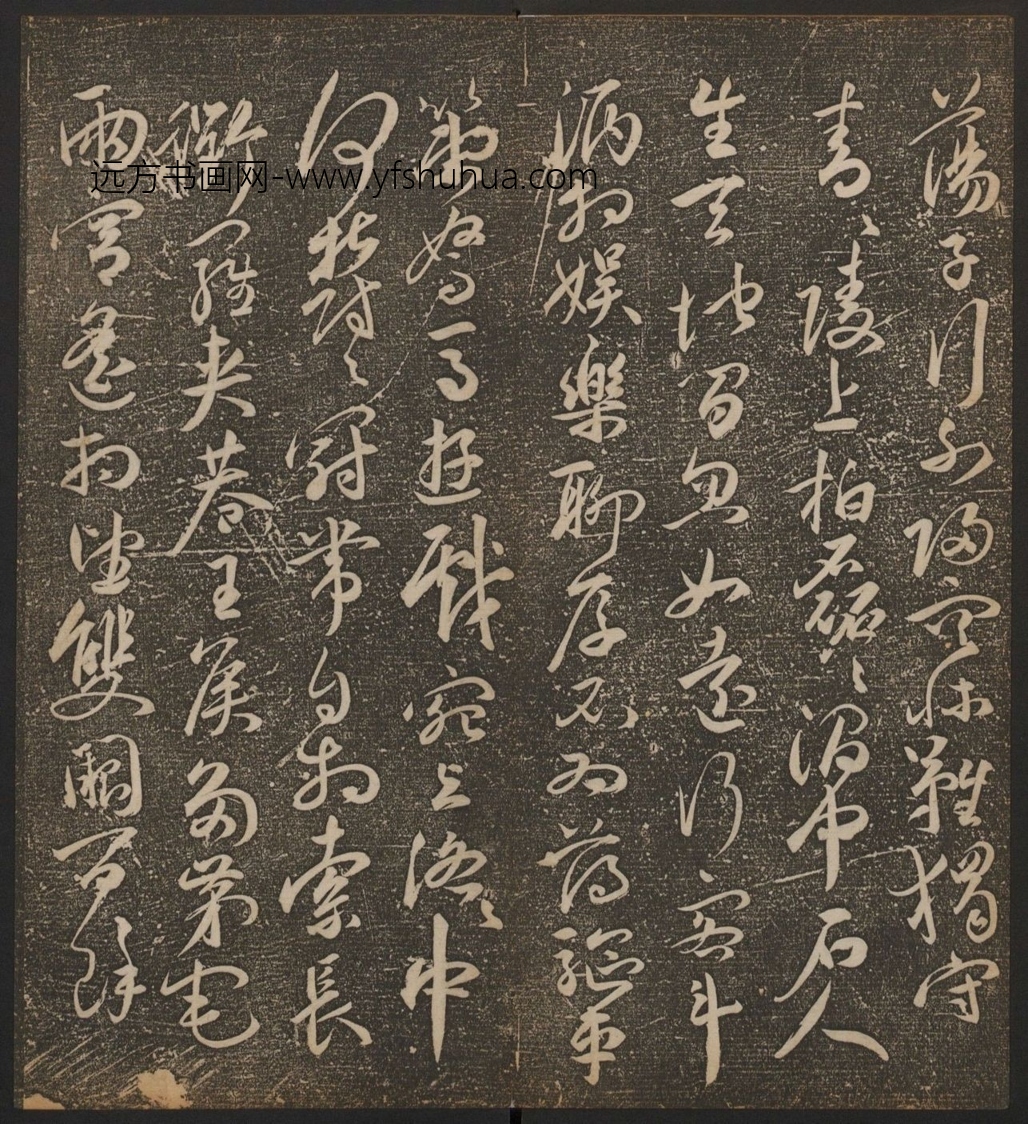 蕩子行不歸空牀難獨守
青〻陵上柏磊〻澗中石人
生天地間忽如遠行客斗
酒相娛樂聊厚不為薄驅車
策駑馬遊戲宛與洛〻中
何鬱〻冠帶自相索長
衢羅夾巷王侯多第宅
兩宮遙相望雙闕百餘
远方书画网-www.yfshuhua.com